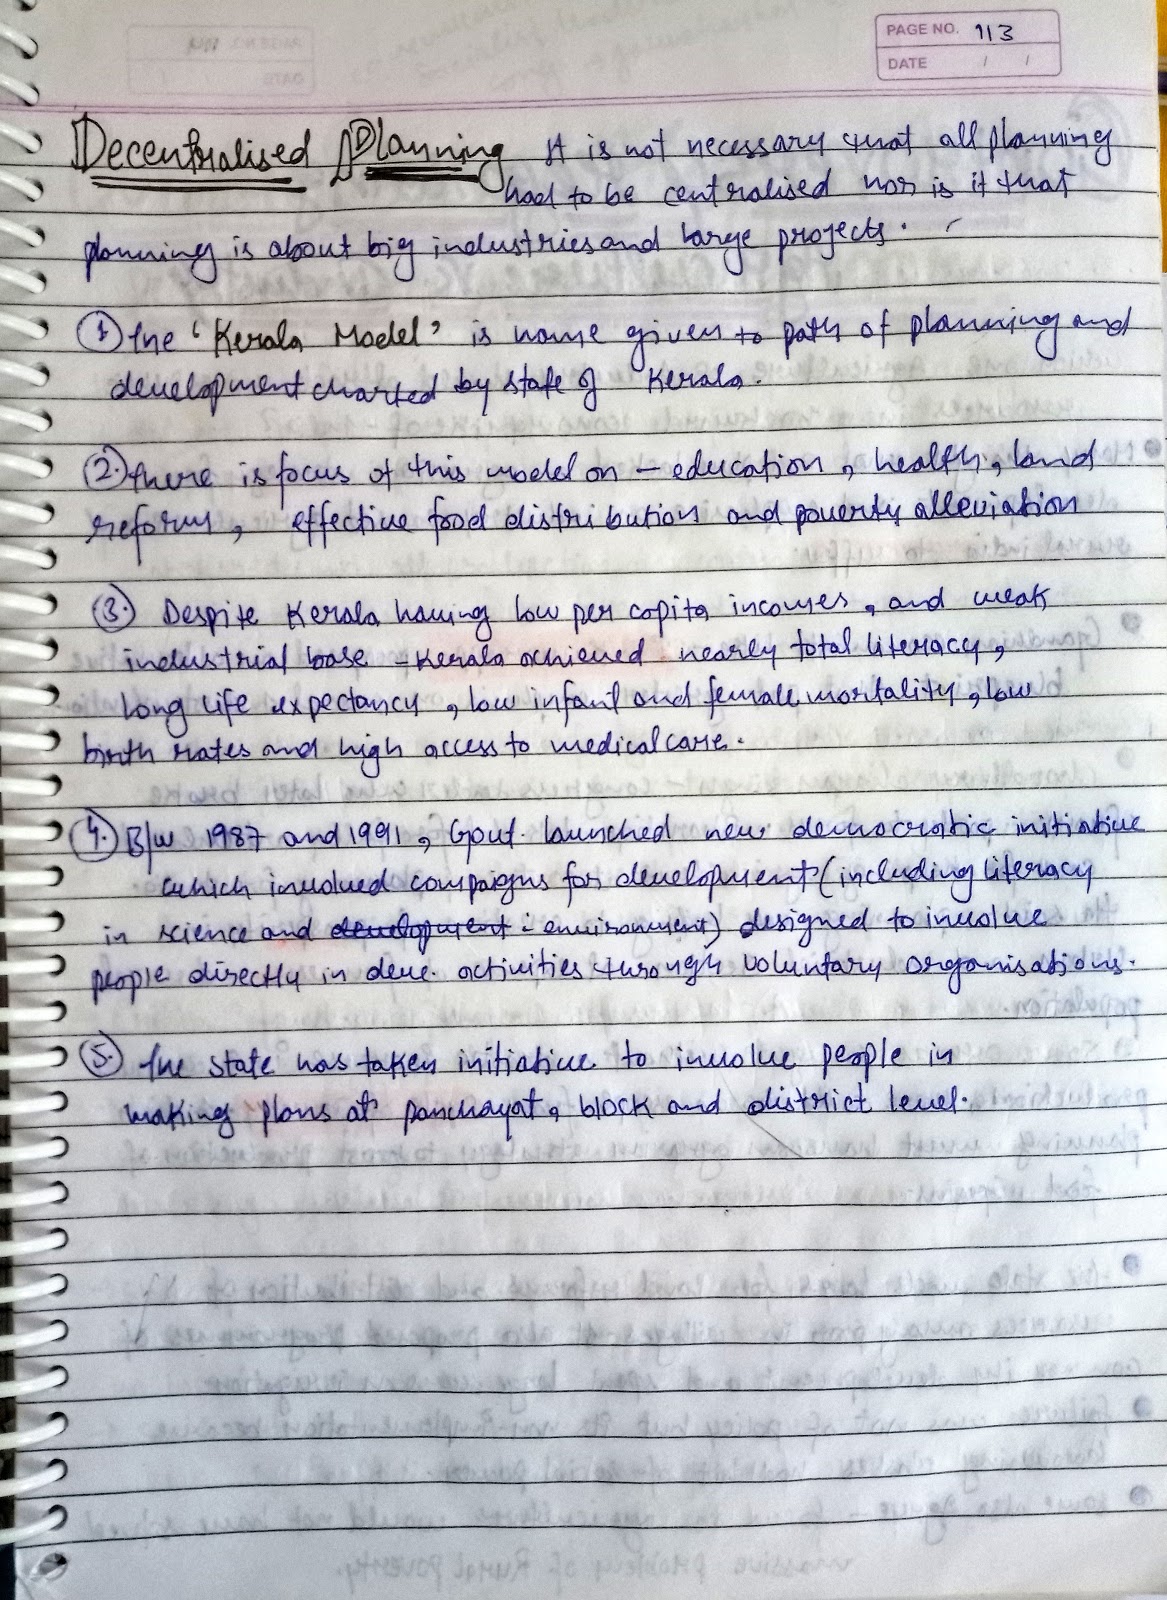 PAGE NO. 113
DATE / /
Decentralised Planning It is not necessary that all planning
had to be centralised nor is it that
planning is about big industries and large projects.
① The 'Kerala Model' is name given to path of planning and
development charted by state of Kerala.
②. there is focus of this model on – education, health, land
reforms, effective food distribution and poverty alleviation
③. Despite Kerala having low per capita incomes, and weak
industrial base – Kerala achieved nearly total literacy,
long life expectancy, low infant and female mortality, low
birth rates and high access to medical care.
④. B/w 1987 and 1991, Govt. launched new democratic initiative
which involved campaigns for development (including literacy
in science and development : environment) designed to involve
people directly in deve. activities through voluntary organisations.
⑤. The state has taken initiative to involve people in
making plans at panchayat, block and district level.